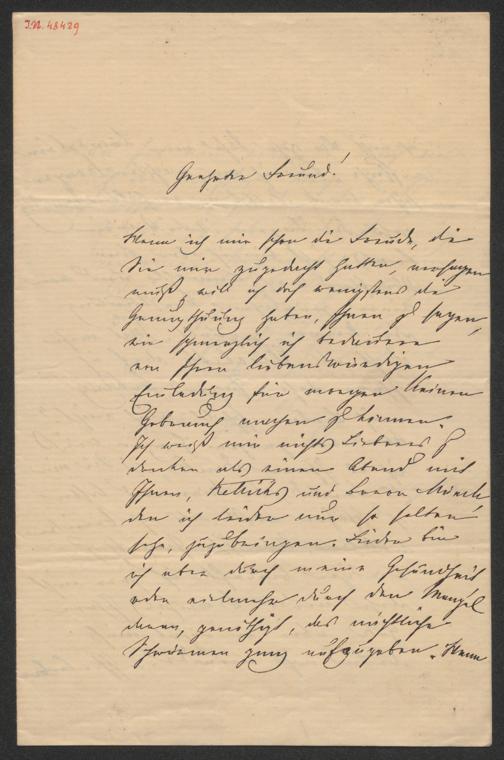 I.N. 48429
Geehrter Freund!
Wenn ich mir schon die Freude, die
Sie mir zugedacht hatten, versagen
muß, will ich doch wenigstens die
Genugthuung haben, Ihnen zu sagen,
wie schmerzlich ich bedauere
von Ihrer liebenswürdigen
Einladung für morgen keinen
Gebrauch machen zu können.
Ich weiß mir nichts Lieberes zu
denken als einen Abend mit
Ihnen, und Baron
den ich leider nur so selten
sehe, zuzubringen. Leider bin
ich aber durch meine Gesundheit
oder vielmehr durch den Mangel
daran, genöthigt, das nächtliche
Schwärmen ganz aufzugeben. Wenn